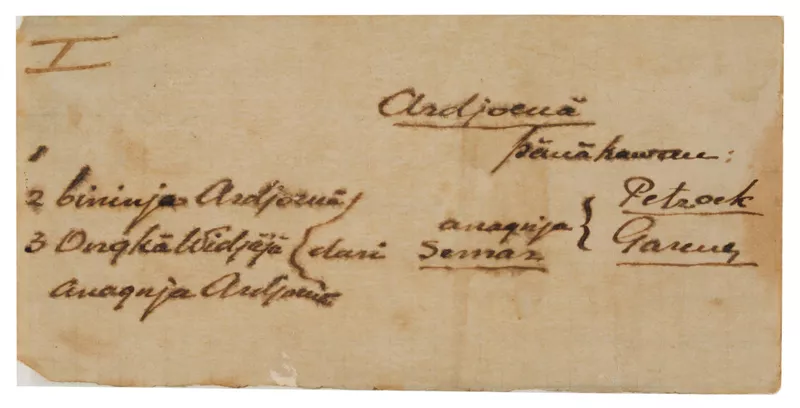 I
Ardjoenä
pänäkawan:
1
2 bininja Ardjoenä
3 Ongkä Widjäjä { dari
anaqnja Ardjoenä
anaqnja {
Semar
Petroek
Gareng